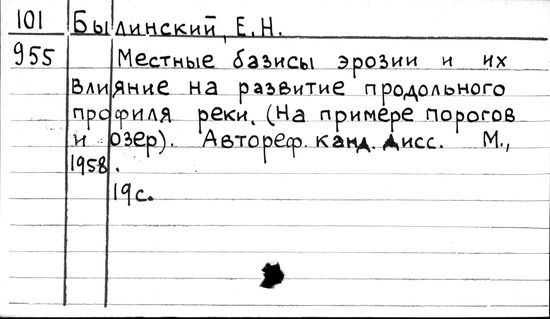 101 Былинский, Е.Н.
955 Местные базисы эрозии и их
влияние на развитие продольного
профиля реки. (На примере порогов
и озер). Автореф. канд. дисс. М.,
1958.
19с.